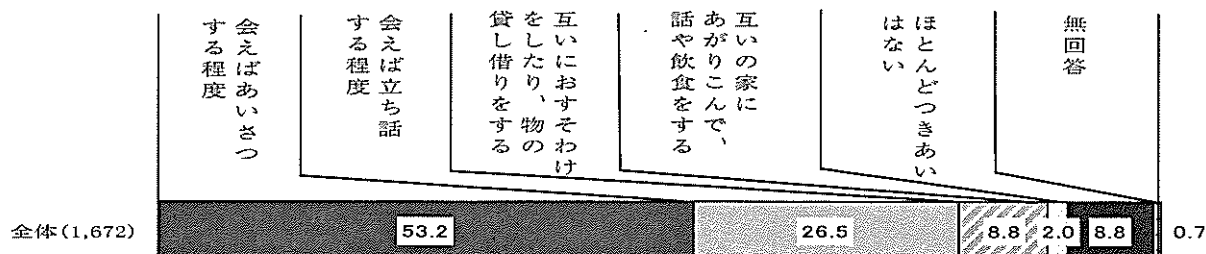 会えばあいさつ
する程度
会えば立ち話
する程度
互いにおすそわけ
をしたり、物の
貸し借りをする
互いの家に
あがりこんで、
話や飲食をする
ほとんどつきあい
はない
無回答
全体(1,672)
53.2
26.5
8.8
2.0
8.8
0.7